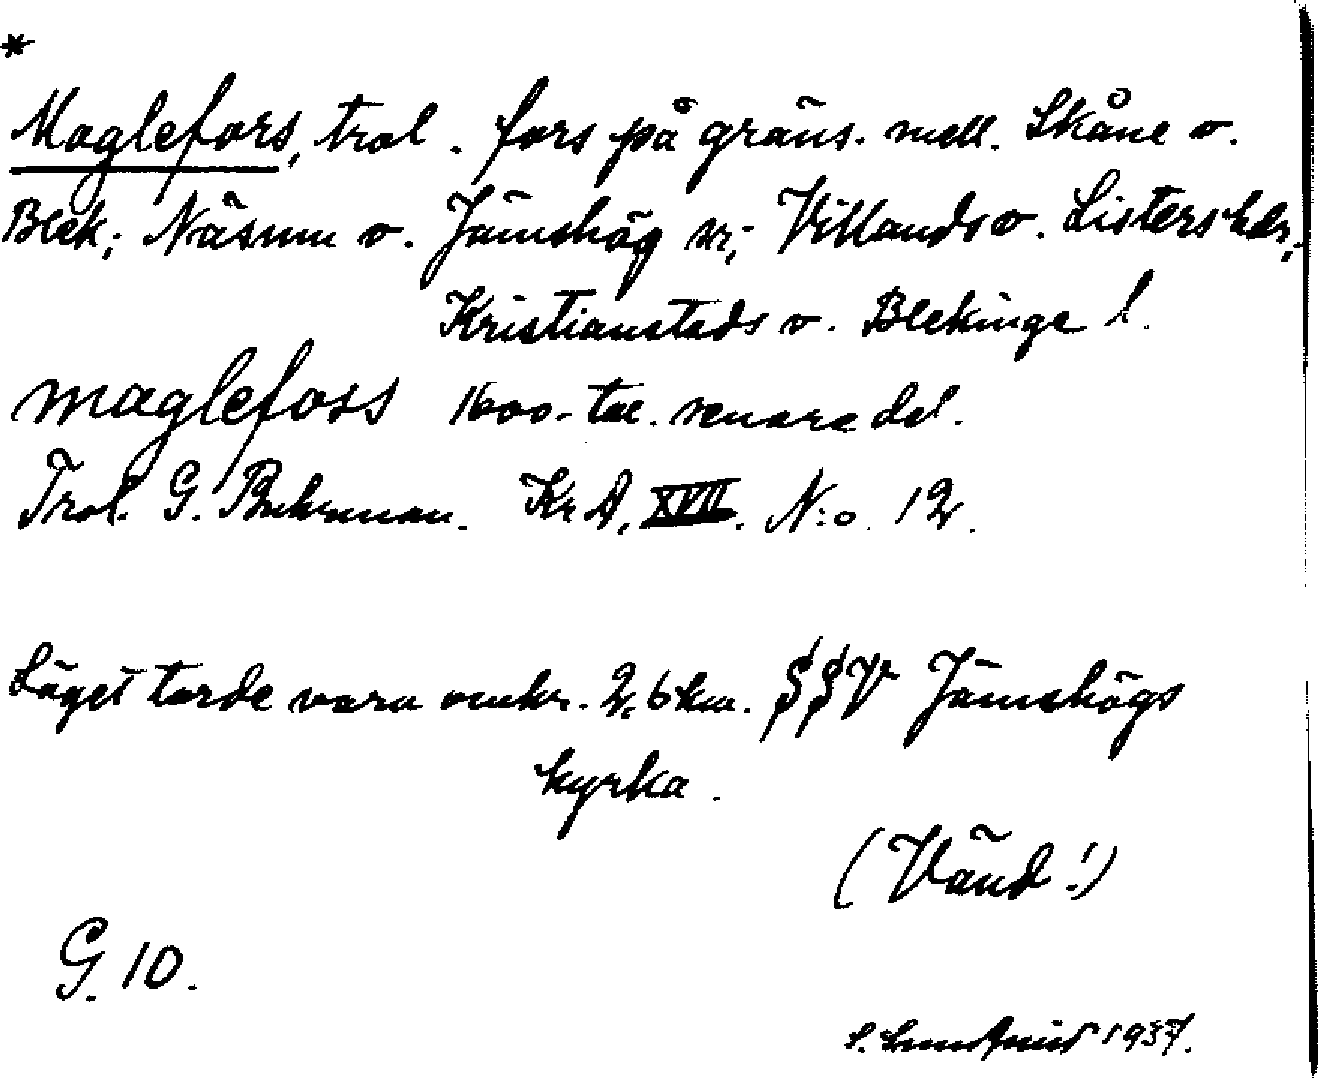 *
Maglefors, trol. fors på gräns. mell. Skåne o.
Blek; Näsum o. Jämshög sn; Villands o. Listers hdr,
Kristianstads o. Blekinge l.
Maglefoss 1600-tal. senare del.
Trol. G. Buhrman. Kr A, XVII. N:o 12.
Läget torde vara omkr. 2,6 km. SSV Jämshögs
kyrka.
(Vänd!)
G. 10.
S. Lundquist 1937.